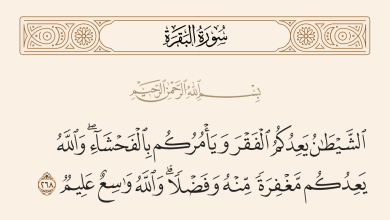 سُورَةُ البَقَرَةِ
بِسْمِ اللَّهِ الرَّحْمَٰنِ الرَّحِيمِ
الشَّيْطَٰنُ يَعِدُكُمُ الْفَقْرَ وَيَأْمُرُكُم بِالْفَحْشَآءِ ۖ وَاللَّهُ
يَعِدُكُم مَّغْفِرَةً مِّنْهُ وَفَضْلًا ۗ وَاللَّهُ وَٰسِعٌ عَلِيمٌ ٢٦٨